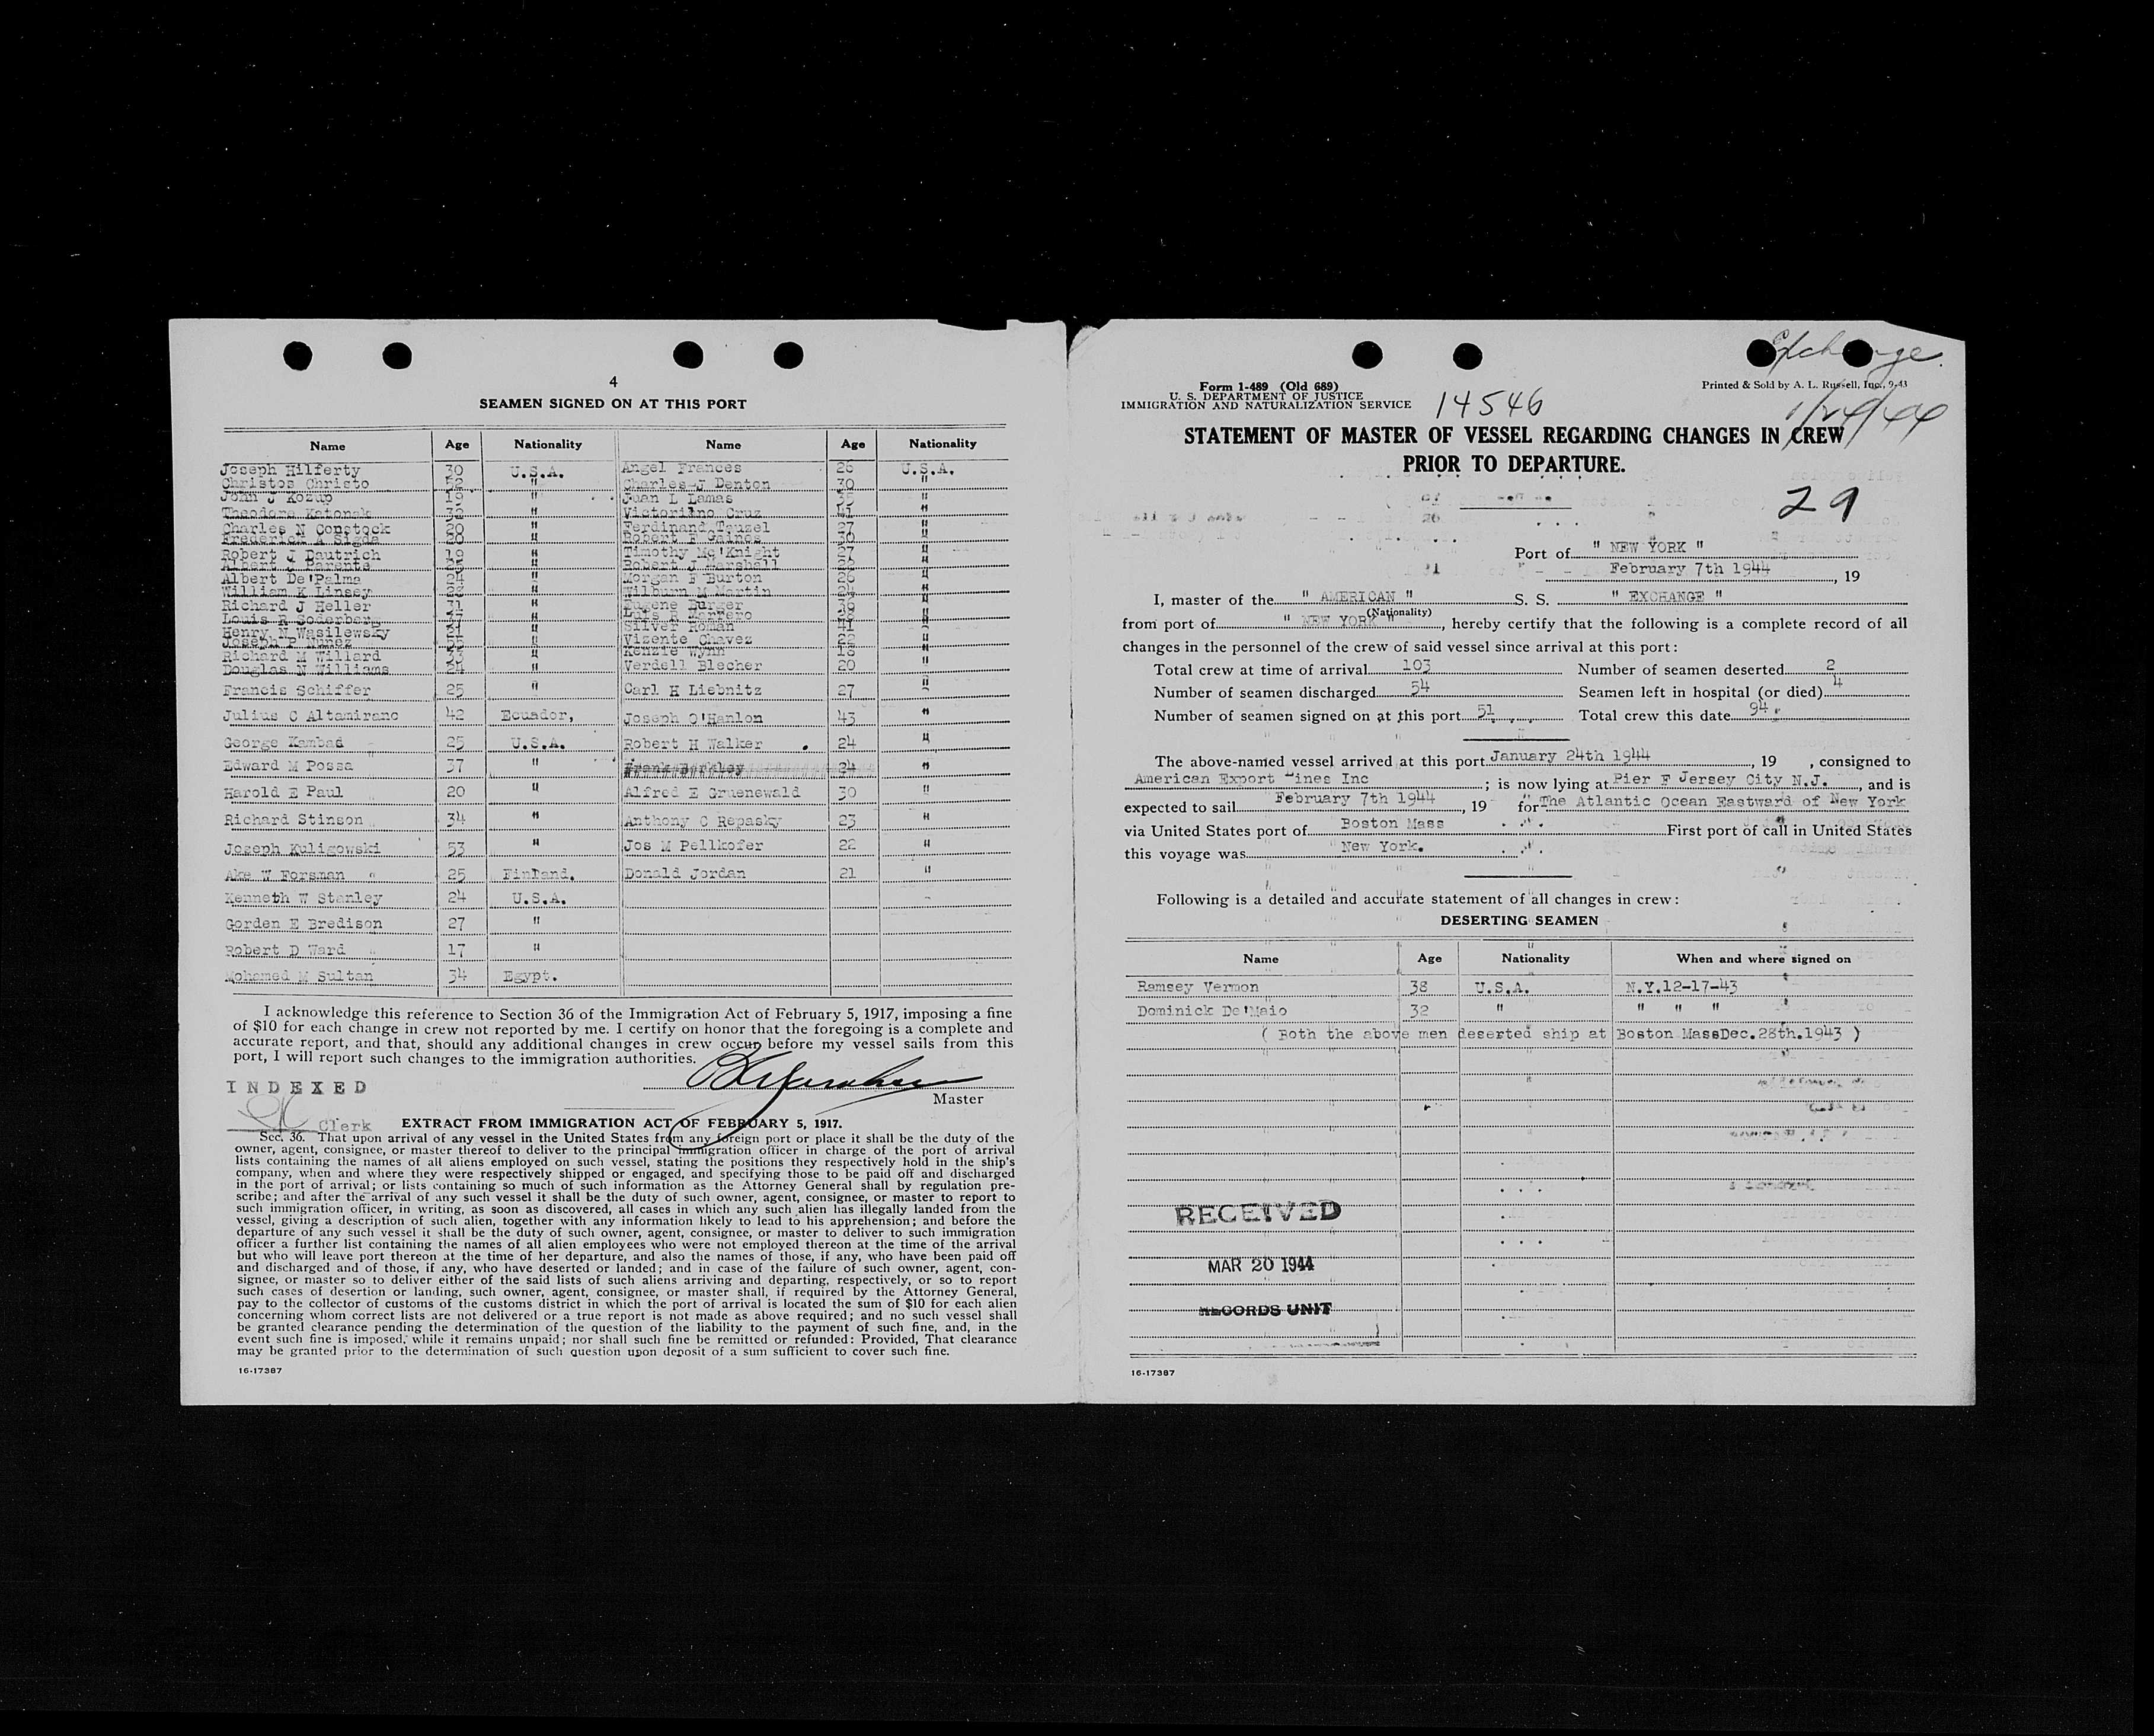 4
SEAMEN SIGNED ON AT THIS PORT
Name Age Nationality Name Age Nationality
Joseph Hilferty 30 U.S.A. Angel Frances 26 U.S.A.
Christos Christo 52 " Charles J Denton 30 "
John J Kozup 19 " Juan L Lamas 35 "
Theodore Katonak 32 " Victorilno Cruz 41 "
Charles N Constock 20 " Ferdinand Touzel 27 "
Frederick A Sigda 20 " Robert F Gaines 30 "
Robert J Dautrich 19 " Timothy Mc'Knight 27 "
Albert Parente " Robert J Marshall 22 "
Albert De'Palma 24 " Morgan F Burton 26 "
William K Linsey " Wilburn M Martin "
Richard J Heller 31 " Eugene Burger 39 "
Louis R Soderberg " Luis R "
Henry N Wasilewsky 21 " Silver Roman 41 "
Joseph P Nunez " Vizente Chavez 22 "
Richard M Willard 33 " Kenzie Wynn 18 "
Douglas N Williams 24 " Verdell Blecher 20 "
Francis Schiffer 25 " Carl H Liebnitz 27 "
Julius C Altamirano 42 Ecuador, Joseph O'Hanlon 43 "
George Kambad 25 U.S.A. Robert H Walker 24 "
Edward M Possa 37 " Frank Berkley 24 "
Harold E Paul 20 " Alfred E Gruenewald 30 "
Richard Stinson 34 " Anthony C Repasky 23 "
Joseph Kuligowski 53 " Jos M Pellkofer 22 "
Ake W Forsman 25 Finland. Donald Jordan 21 "
Kenneth W Stanley 24 U.S.A.
Gorden E Bredison 27 "
Robert D Ward 17 "
Mohamed M Sultan 34 Egypt.
I acknowledge this reference to Section 36 of the Immigration Act of February 5, 1917, imposing a fine
of $10 for each change in crew not reported by me. I certify on honor that the foregoing is a complete and
accurate report, and that, should any additional changes in crew occur before my vessel sails from this
port, I will report such changes to the immigration authorities.
INDEXED
Master
Clerk
EXTRACT FROM IMMIGRATION ACT OF FEBRUARY 5, 1917.
Sec. 36. That upon arrival of any vessel in the United States from any foreign port or place it shall be the duty of the
owner, agent, consignee, or master thereof to deliver to the principal immigration officer in charge of the port of arrival
lists containing the names of all aliens employed on such vessel, stating the positions they respectively hold in the ship's
company, when and where they were respectively shipped or engaged, and specifying those to be paid off and discharged
in the port of arrival; or lists containing so much of such information as the Attorney General shall by regulation pre-
scribe; and after the arrival of any such vessel it shall be the duty of such owner, agent, consignee, or master to report to
such immigration officer, in writing, as soon as discovered, all cases in which any such alien has illegally landed from the
vessel, giving a description of such alien, together with any information likely to lead to his apprehension; and before the
departure of any such vessel it shall be the duty of such owner, agent, consignee, or master to deliver to such immigration
officer a further list containing the names of all alien employees who were not employed thereon at the time of the arrival
but who will leave port thereon at the time of her departure, and also the names of those, if any, who have been paid off
and discharged and of those, if any, who have deserted or landed; and in case of the failure of such owner, agent, con-
signee, or master so to deliver either of the said lists of such aliens arriving and departing, respectively, or so to report
such cases of desertion or landing, such owner, agent, consignee, or master shall, if required by the Attorney General,
pay to the collector of customs of the customs district in which the port of arrival is located the sum of $10 for each alien
concerning whom correct lists are not delivered or a true report is not made as above required; and no such vessel shall
be granted clearance pending the determination of the question of the liability to the payment of such fine, and, in the
event such fine is imposed, while it remains unpaid; nor shall such fine be remitted or refunded: Provided, That clearance
may be granted prior to the determination of such question upon deposit of a sum sufficient to cover such fine.
16-17387
Exchange
Form 1-489 (Old 689)
U. S. DEPARTMENT OF JUSTICE
IMMIGRATION AND NATURALIZATION SERVICE
14546
Printed & Sold by A. L. Russell, Inc., 9-43
1/24/44
STATEMENT OF MASTER OF VESSEL REGARDING CHANGES IN CREW
PRIOR TO DEPARTURE.
29
Port of " NEW YORK "
February 7th 1944, 19
I, master of the " AMERICAN " S. S. " EXCHANGE "
(Nationality)
from port of " NEW YORK ", hereby certify that the following is a complete record of all
changes in the personnel of the crew of said vessel since arrival at this port:
Total crew at time of arrival 103 Number of seamen deserted 2
Number of seamen discharged 54 Seamen left in hospital (or died) 4
Number of seamen signed on at this port 51 Total crew this date 94
The above-named vessel arrived at this port January 24th 1944, 19 , consigned to
American Export Lines Inc ; is now lying at Pier F Jersey City N.J., and is
expected to sail February 7th 1944, 19 for The Atlantic Ocean Eastward of New York
via United States port of Boston Mass First port of call in United States
this voyage was New York.
Following is a detailed and accurate statement of all changes in crew:
DESERTING SEAMEN
Name Age Nationality When and where signed on
Ramsey Vermon 38 U.S.A. N.Y.12-17-43
Dominick De'Maio 32 " " " "
( Both the above men deserted ship at Boston MassDec.28th.1943 )
RECEIVED
MAR 20 1944
RECORDS UNIT
16-17387